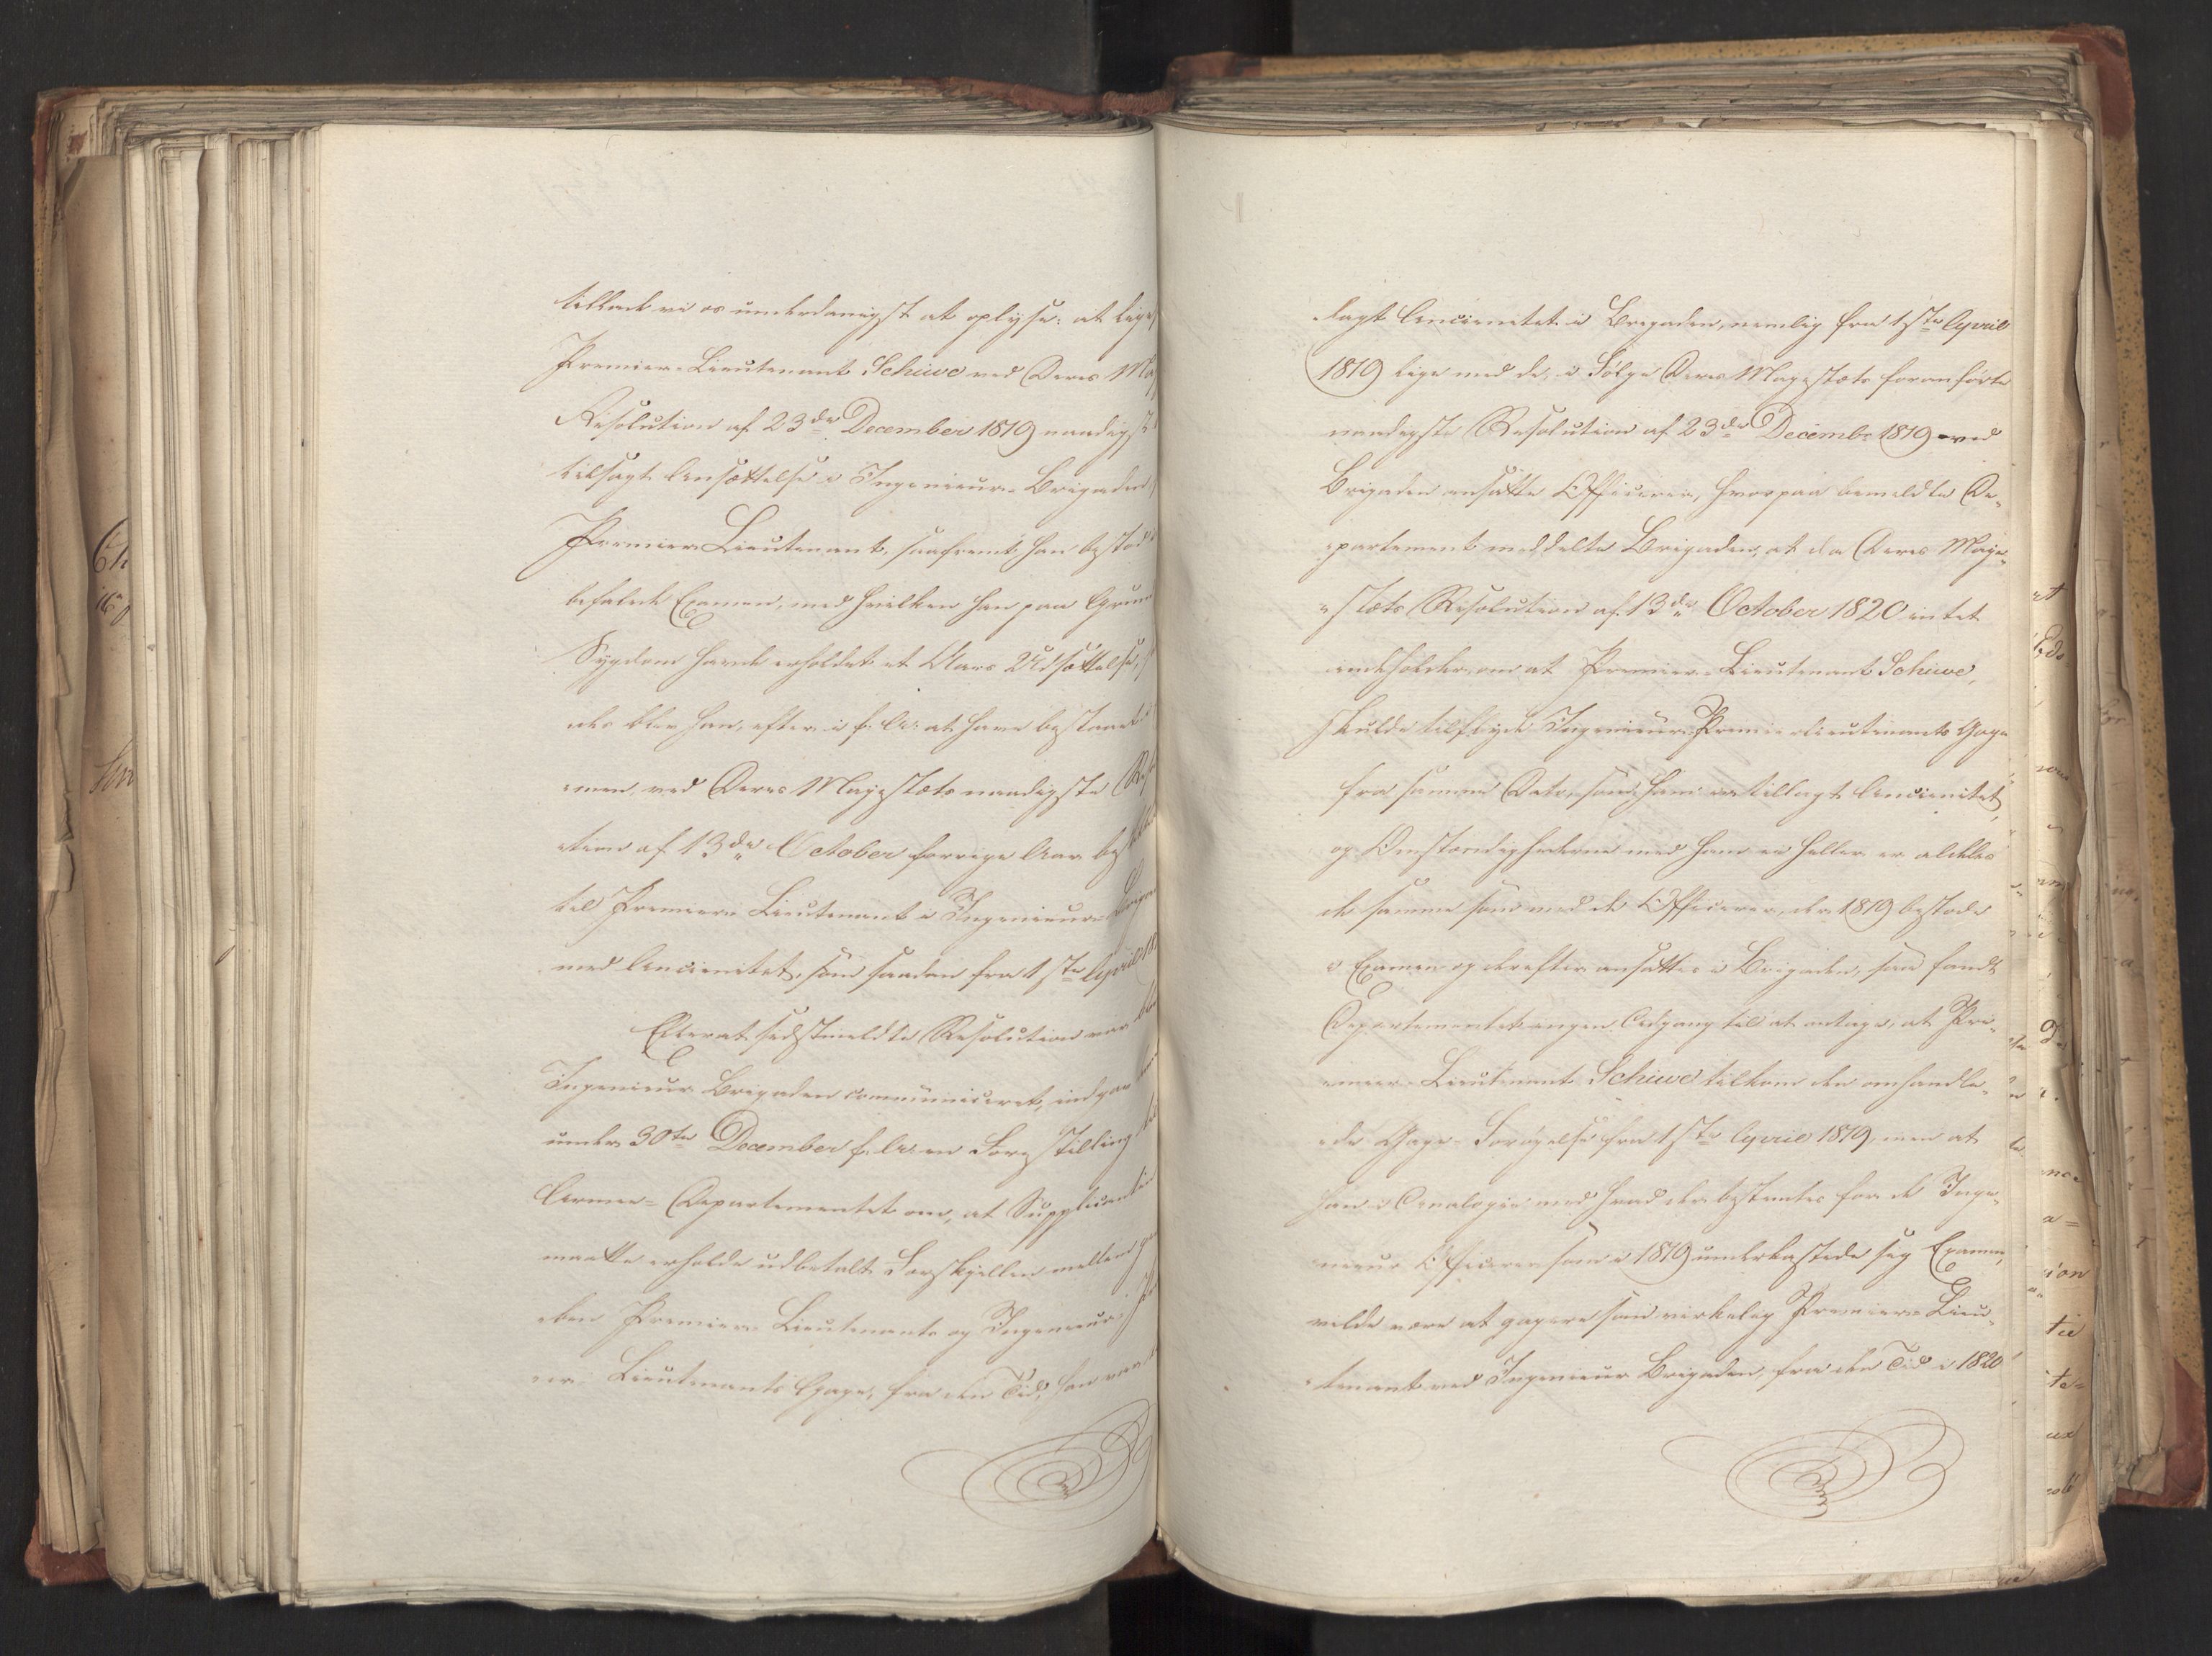 tillade vi os underdanigst at oplyse: at ligesom
Premier-Lieutenant Schiwe ved Deres Maj
Resolution af 23de December 1819 naadigst
tilsagt Ansættelse i Ingenieur-Brigaden
Premier Lieutenant, saafremt han bestod
befalede Examen, med hvilken han paa Grund
Sygdom havde erholdet et Aars Udsættelse,
des blev han, efter i f. A. at have bestaaet
men, ved Deres Majestæts naadigste Reso
ition af 13de October forrige Aar be
til Premier Lieutenant i Ingenieur-Briga
med Ancienitet som saadan fra 1ste April 18
Efterat sidstmeldte Resolution var
Ingenieur Brigaden communiceret, indgav
under 30te December f. A. en Forestilling
Armee-Departementet om, at Supplicanten
maatte erholde udbetalt Forskjellen mellem
Premier Lieutenants og Ingenieur
er Lieutenants Gage, fra den Tid, han var
lagt Ancienitet i Brigaden, nemlig fra 1ste April
1819 lige med de, i Følge Deres Majestæts foranførte
naadigste Resolution af 23de Decembr 1819 ved
Brigaden ansatte Officerer, hvorpaa bemeldte De-
partement meddelte Brigaden, at da Deres Maje-
stæts Resolution af 13de October 1820 intet
indeholder om at Premier-Lieutenant Schiwe,
skulde tilflyde Ingenieur Premier Lieutenants Gage
fra samme Dato, som ham er tillagt Ancienitet,
og Omstændighederne med ham ei heller er aldeles
de samme som med de Officerer, der 1819 bestode
Examen og derefter ansattes i Brigaden, saa fandt
Departementet ingen Adgang til at antage, at Pri-
meer-Lieutenant Schiwe tilkom den omhandle-
de Gage-Forøgelse fra 1ste April 1819, men at
han i Analogie med hvad der bestemtes for de Inge-
nieur Officerer som i 1819 underkastede sig Examen,
vilde være at gagere som virkelig Premier-Lieu-
tenant ved Ingenieur Brigaden, fra den Tid i 1820